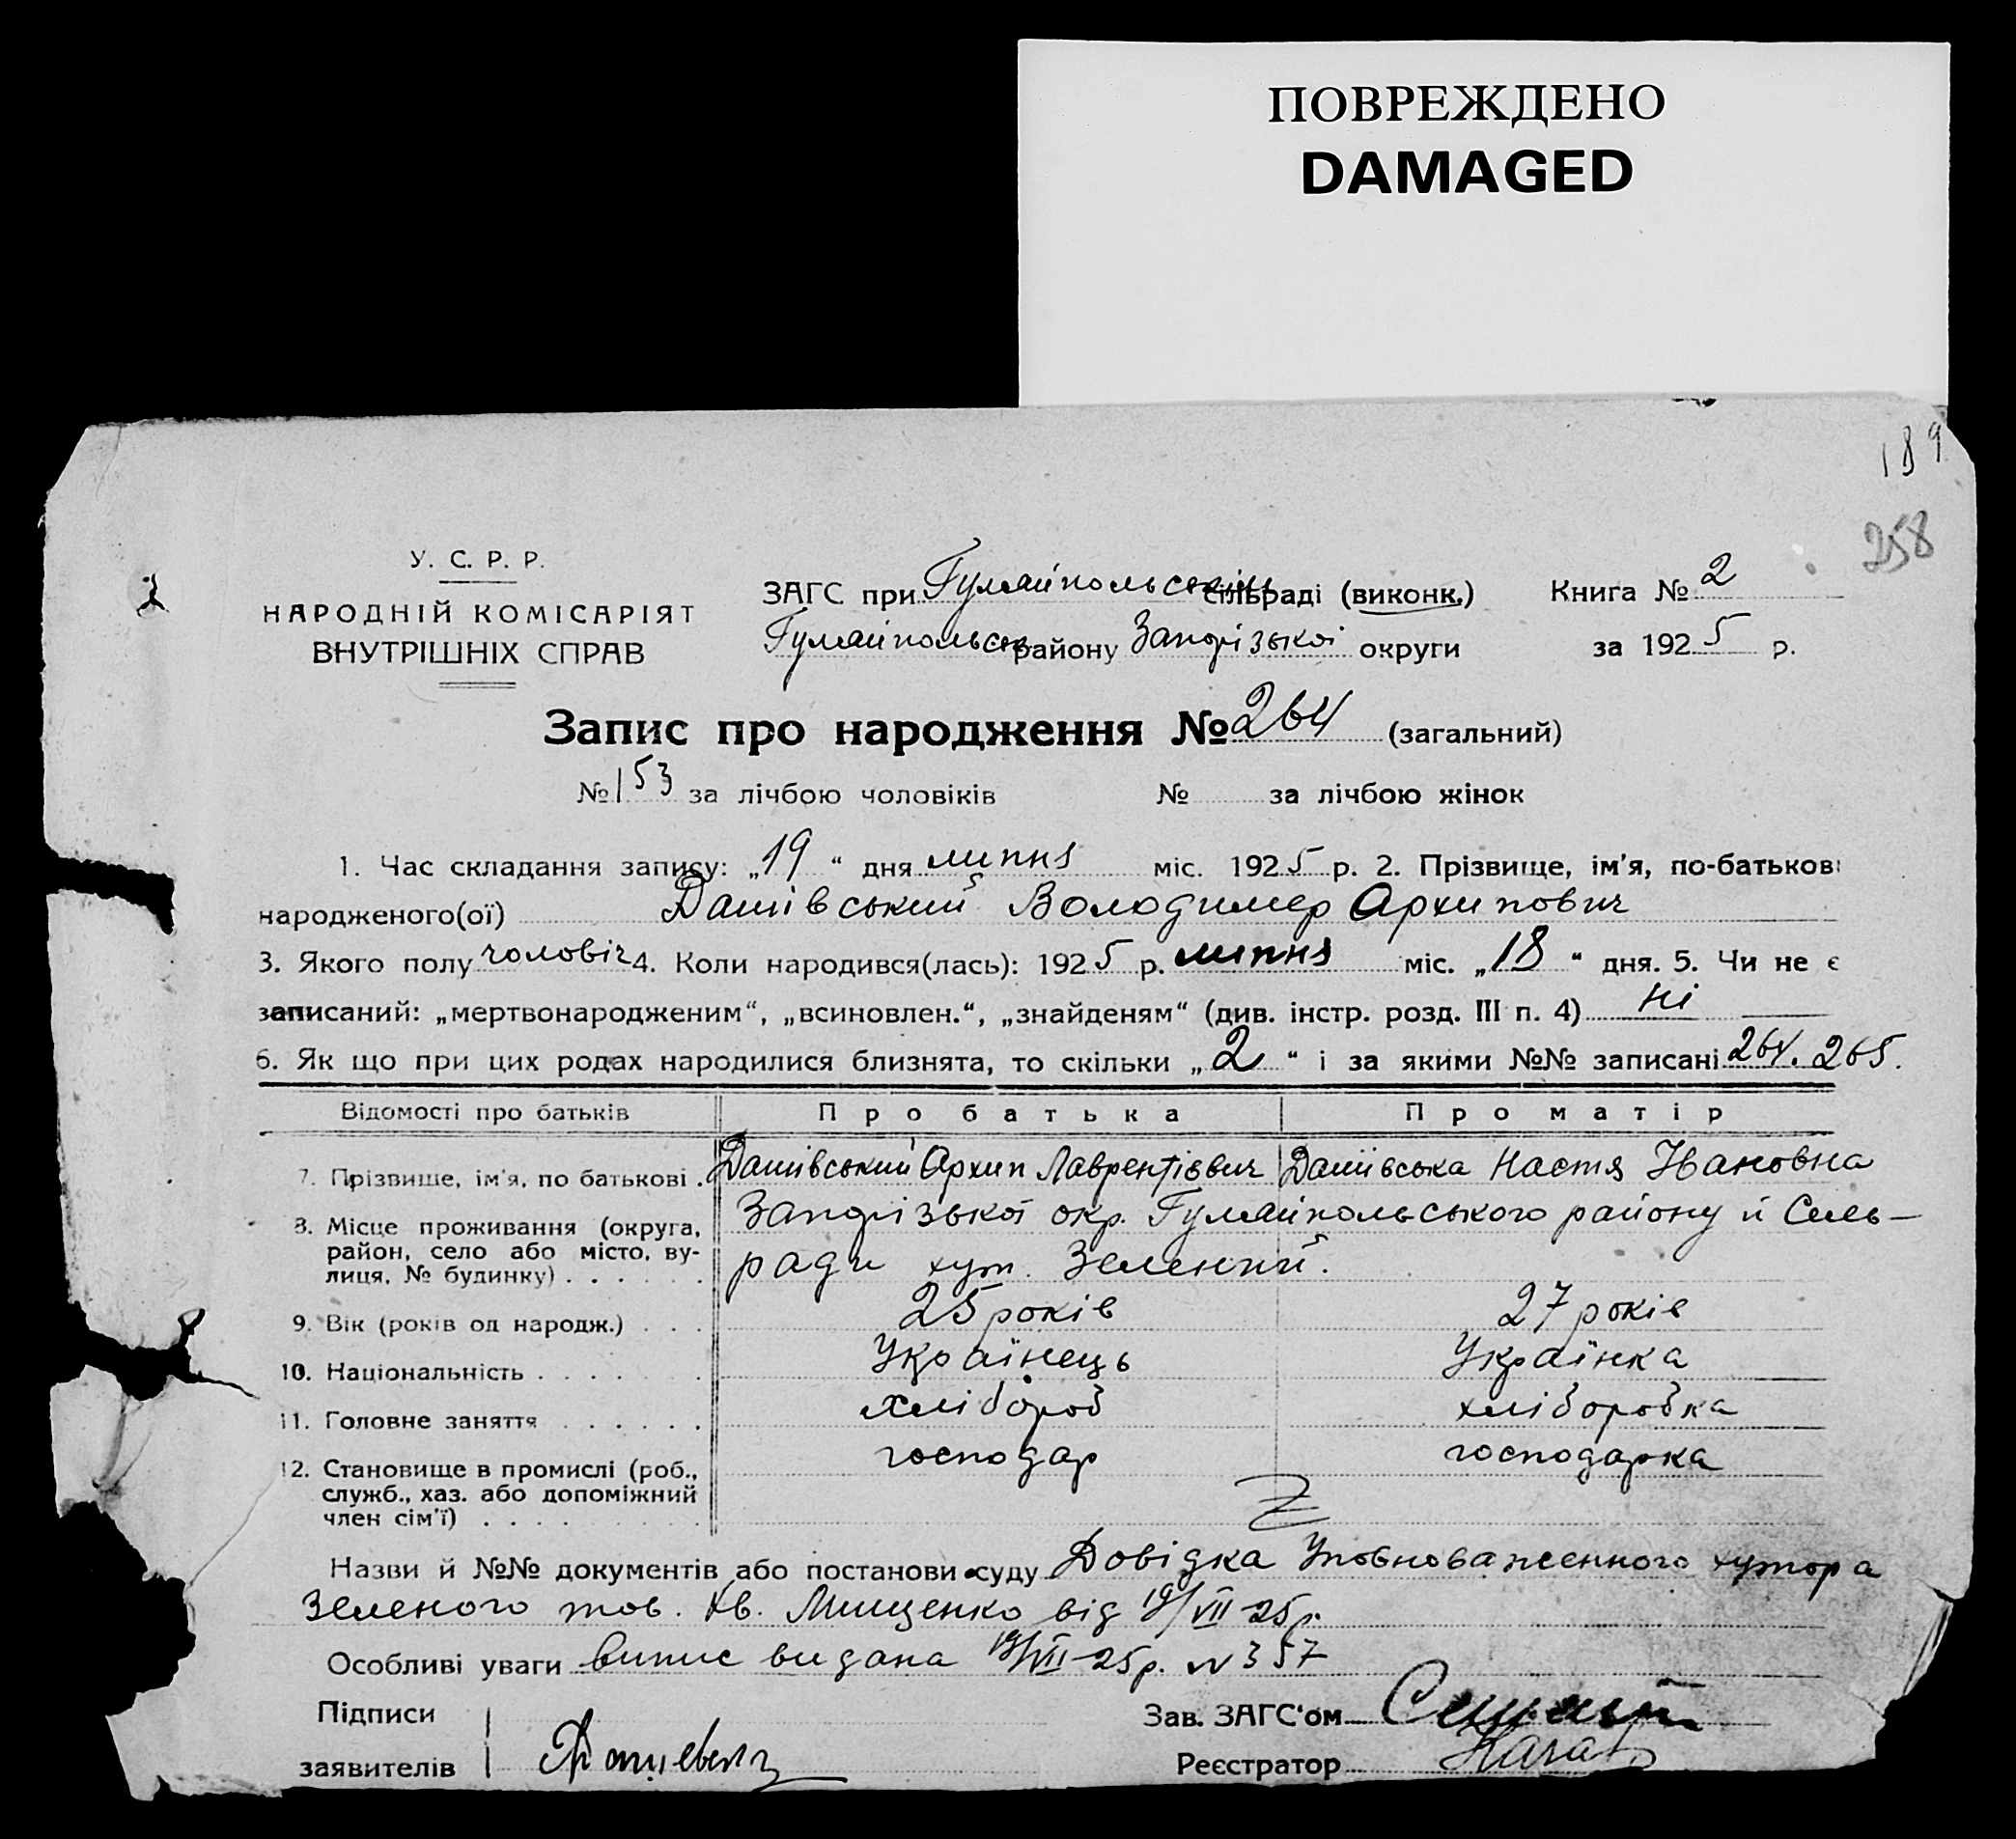 ПОВРЕЖДЕНО
DAMAGED
189
258
У. С. Р. Р.
НАРОДНІЙ КОМІСАРІЯТ
ВНУТРІШНІХ СПРАВ
ЗАГС при Гуляйпольським сільраді (виконк.) Книга № 2
Гуляйпольськ району Запорізької округи за 1925 р.
Запис про народження № 264 (загальний)
№ 153 за лічбою чоловіків № за лічбою жінок
1. Час складання запису: „19“ дня липня міс. 1925 р. 2. Прізвище, ім'я, по-батькові
народженого(ої) Дашівський Володимер Архипович
3. Якого полу чоловіч 4. Коли народився(лась): 1925 р. липня міс. „18“ дня. 5. Чи не є
записаний: „мертвонародженим“, „всиновлен.“, „знайденям“ (див. інстр. розд. III п. 4) Ні
6. Як що при цих родах народилися близнята, то скільки „2“ і за якими №№ записані 264. 265.
Відомості про батьків Про батька Про матір
7. Прізвище, ім'я, по батькові . Дашівський Архип Лаврентієвич Дашівська Настя Івановна
8. Місце проживання (округа, район, село або місто, вулиця, № будинку) . . . . . . Запорізької окр. Гуляйпольського району й Сель-
ради хут. Зелений.
9. Вік (років од народж.) . . . 25 років 27 років
10. Національність . . . . . . Українець Українка
11. Головне заняття . . . . . . хлібороб хліборобка
12. Становище в промислі (роб., служб., хаз. або допоміжний член сім'ї) . . . . . . . . господар господарка
Назви й №№ документів або постанови суду Довідка Уповноваженного хутора
Зеленого тов. Ів. Мищенко від 19/VII-25р.
Особливі уваги випис видана 19/VII-25р. N 357
Підписи Зав. ЗАГС'ом
заявителів Реєстратор